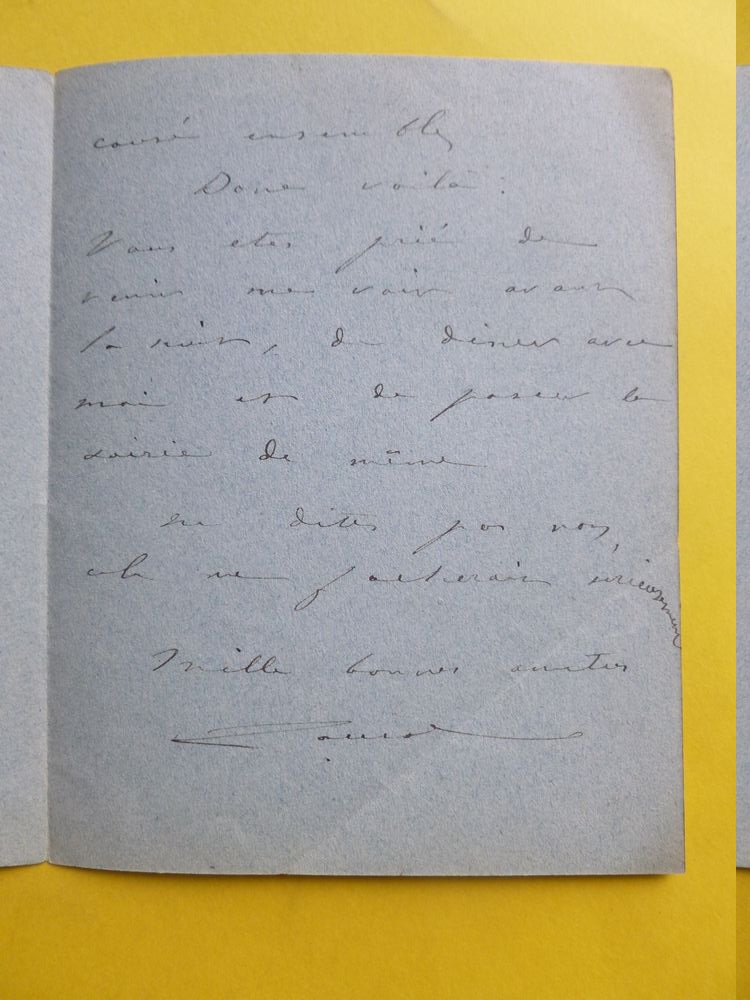 causé ensemble,
Donc voilà :
Vous etes prié de
venir me voir avant
la nuit, de diner avec
moi et de passer la
soirée de même
ne dites pas non,
cela me facherait sérieusement
Mille bonnes amities